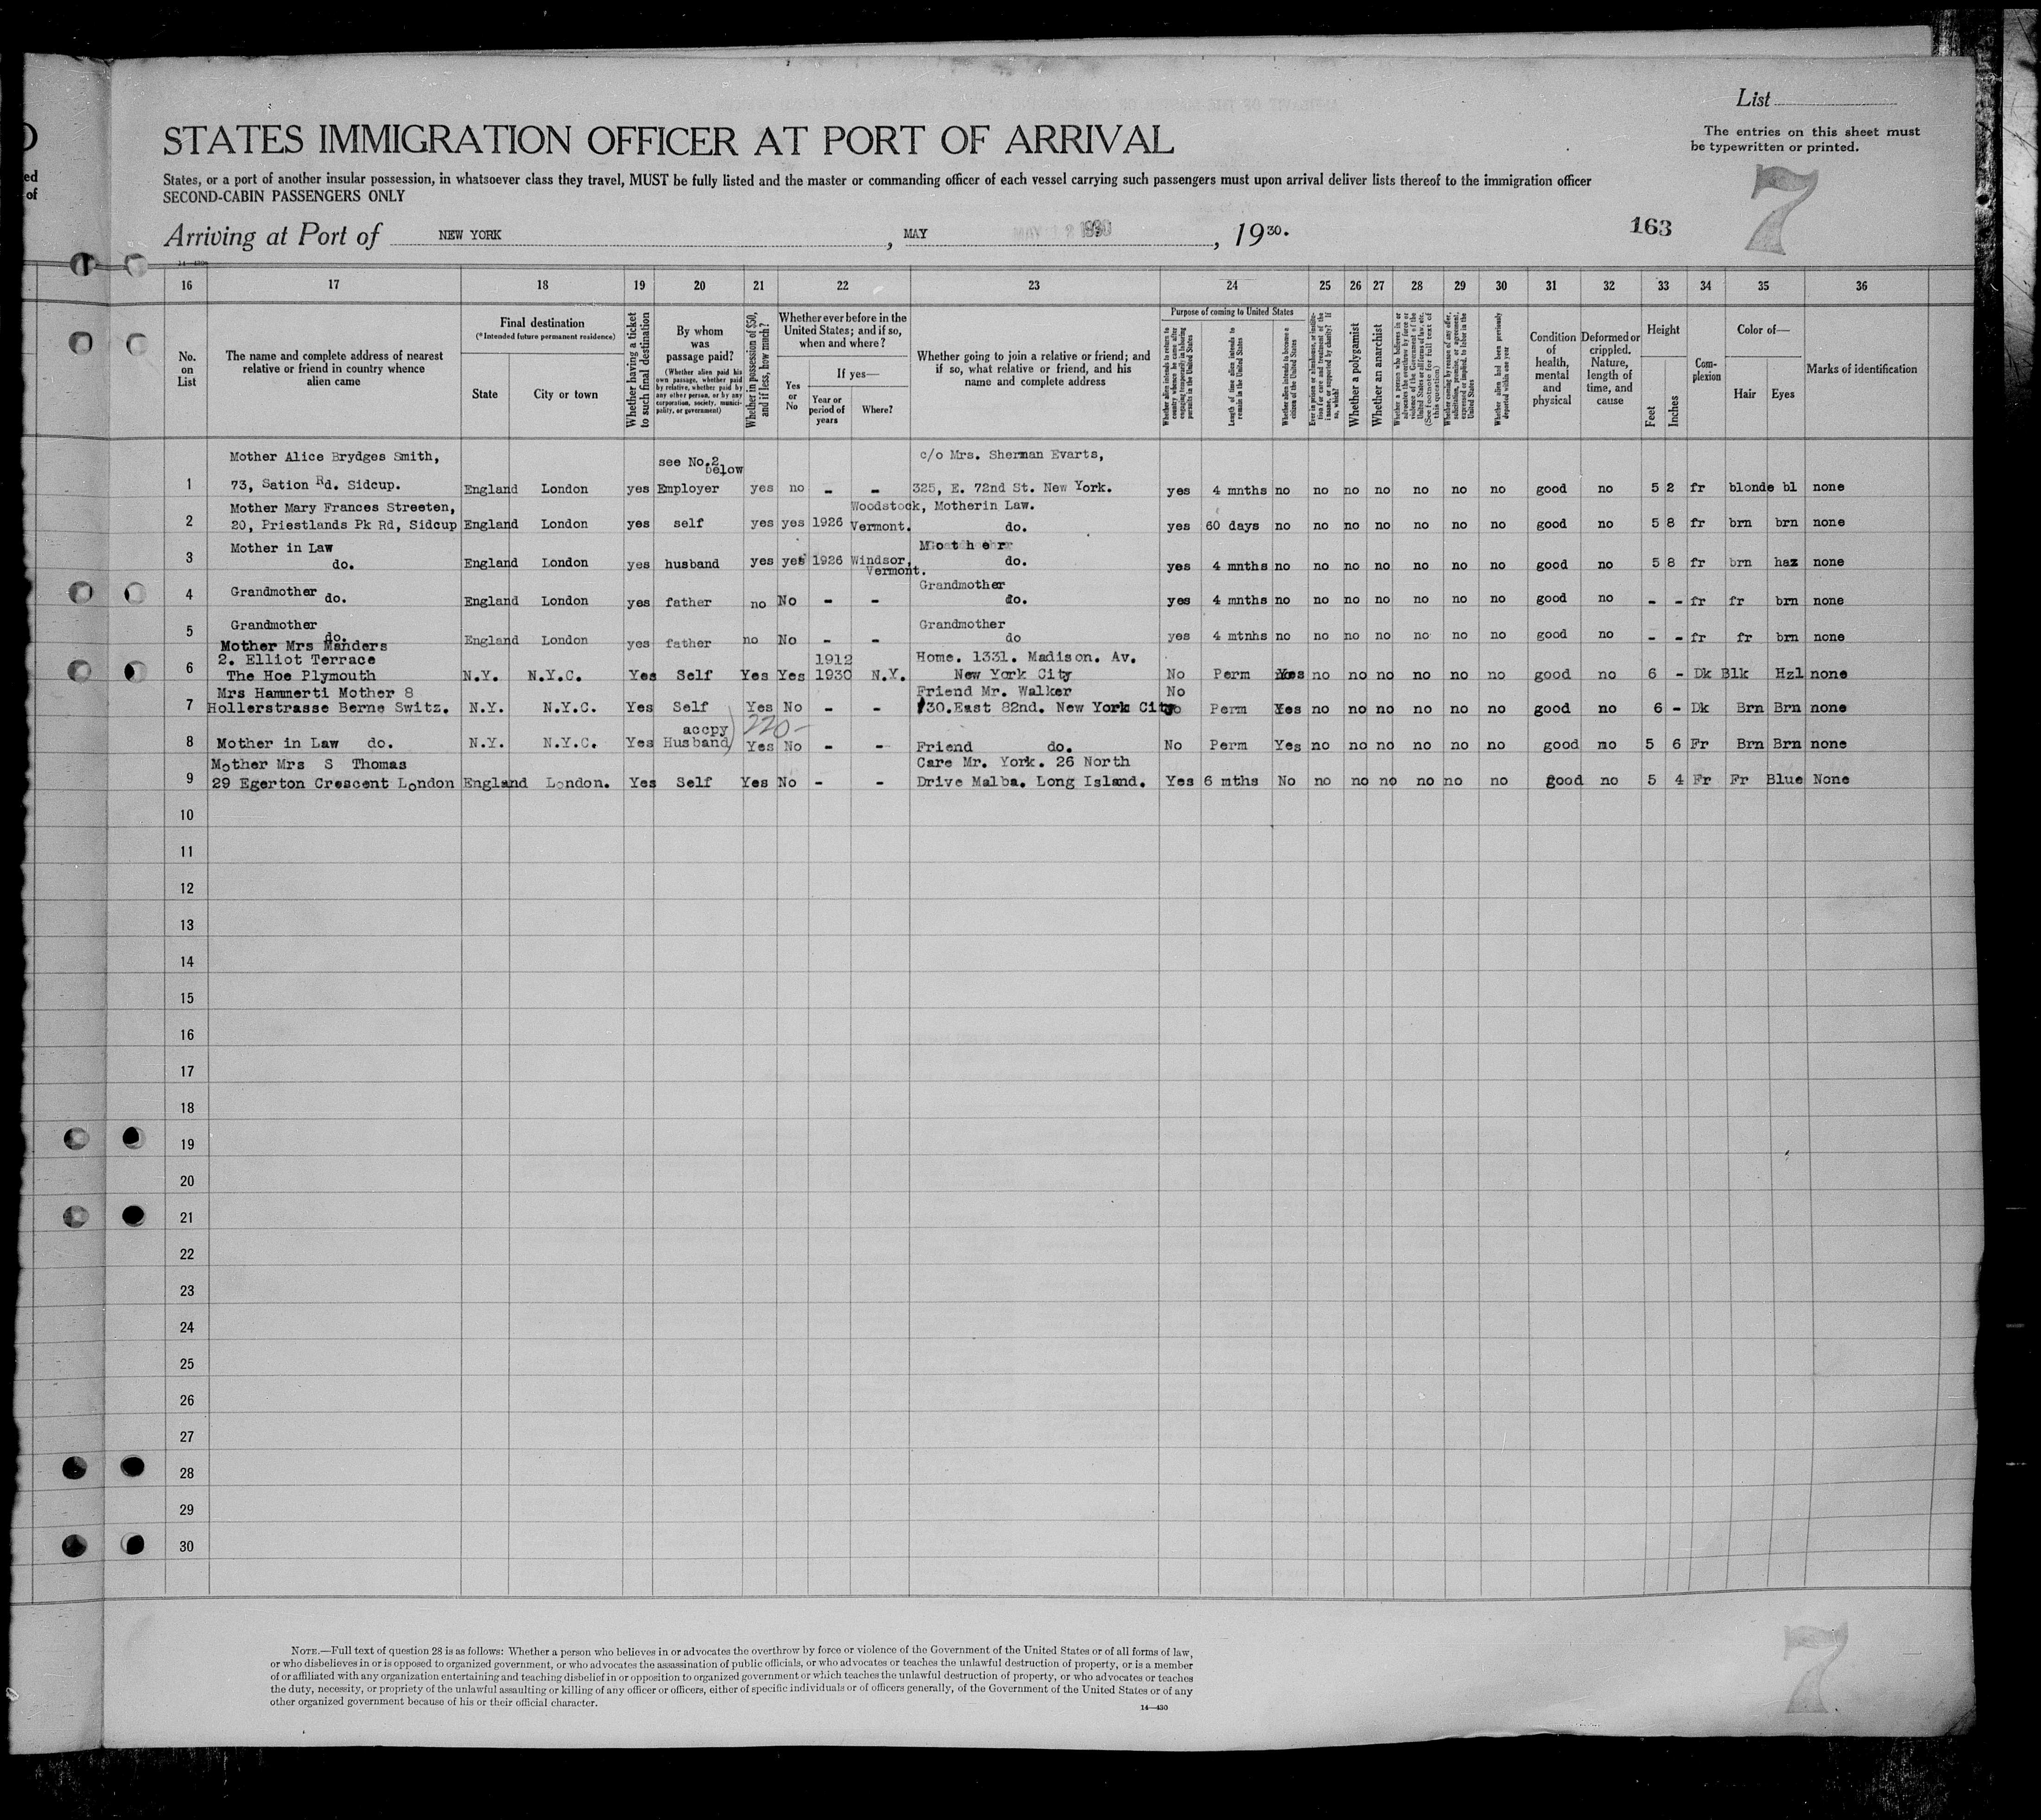 List
STATES IMMIGRATION OFFICER AT PORT OF ARRIVAL
The entries on this sheet must
be typewritten or printed.
States, or a port of another insular possession, in whatsoever class they travel, MUST be fully listed and the master or commanding officer of each vessel carrying such passengers must upon arrival deliver lists thereof to the immigration officer
SECOND-CABIN PASSENGERS ONLY
7
Arriving at Port of NEW YORK, MAY, 1930.
163
16 17 18 19 20 21 22 23 24 25 26 27 28 29 30 31 32 33 34 35 36
No. on List
The name and complete address of nearest relative or friend in country whence alien came
Final destination
(*Intended future permanent residence)
State
City or town
Whether having a ticket to such final destination
By whom was passage paid?
(Whether alien paid his own passage, whether paid by relative, whether paid by any other person, or by any corporation, society, municipality, or government)
Whether in possession of $50, and if less, how much?
Whether ever before in the United States; and if so, when and where?
Yes or No
If yes—
Year or period of years
Where?
Whether going to join a relative or friend; and if so, what relative or friend, and his name and complete address
Purpose of coming to United States
Whether alien intends to return to country whence he came after engaging temporarily in laboring pursuits in the United States
Length of time alien intends to remain in the United States
Whether alien intends to become a citizen of the United States
Ever in prison or almshouse, or institution for care and treatment of the insane, or supported by charity? If so, which?
Whether a polygamist
Whether an anarchist
Whether coming by reason of any offer, solicitation, promise, or agreement, expressed or implied, to labor in the United States
Whether alien had been previously deported within one year
Condition of health, mental and physical
Deformed or crippled. Nature, length of time, and cause
Height
Feet
Inches
Complexion
Color of—
Hair
Eyes
Marks of identification
Mother Alice Brydges Smith, see No.2 below c/o Mrs. Sherman Evarts,
1 73, Sation Rd. Sidcup. England London yes Employer yes no - - 325, E. 72nd St. New York. yes 4 mnths no no no no no no no good no 5 2 fr blonde bl none
Mother Mary Frances Streeten, Woodstock, Motherin Law.
2 20, Priestlands Pk Rd, Sidcup England London yes self yes yes 1926 Vermont. do. yes 60 days no no no no no no no good no 5 8 fr brn brn none
Mother in Law Mother
3 do. England London yes husband yes yes 1926 Windsor, Vermont. do. yes 4 mnths no no no no no no no good no 5 8 fr brn haz none
Grandmother Grandmother
4 do. England London yes father no No - - do. yes 4 mnths no no no no no no no good no - - fr fr brn none
Grandmother Grandmother
5 do. England London yes father no No - - do yes 4 mtnhs no no no no no no no good no - - fr fr brn none
Mother Mrs Manders
2. Elliot Terrace 1912 Home. 1331. Madison. Av.
6 The Hoe Plymouth N.Y. N.Y.C. Yes Self Yes Yes 1930 N.Y. New York City No Perm Yes no no no no no no good no 6 - Dk Blk Hzl none
Mrs Hammerti Mother 8 Friend Mr. Walker No
7 Hollerstrasse Berne Switz. N.Y. N.Y.C. Yes Self Yes No - - 30.East 82nd. New York City Perm Yes no no no no no no good no 6 - Dk Brn Brn none
accpy 220-
8 Mother in Law do. N.Y. N.Y.C. Yes Husband Yes No - - Friend do. No Perm Yes no no no no no no good no 5 6 Fr Brn Brn none
Mother Mrs S Thomas Care Mr. York. 26 North
9 29 Egerton Crescent London England London. Yes Self Yes No - - Drive Malba. Long Island. Yes 6 mths No no no no no no no good no 5 4 Fr Fr Blue None
10
11
12
13
14
15
16
17
18
19
20
21
22
23
24
25
26
27
28
29
30
NOTE.—Full text of question 28 is as follows: Whether a person who believes in or advocates the overthrow by force or violence of the Government of the United States or of all forms of law,
or who disbelieves in or is opposed to organized government, or who advocates the assassination of public officials, or who advocates or teaches the unlawful destruction of property, or is a member
of or affiliated with any organization entertaining and teaching disbelief in or opposition to organized government or which teaches the unlawful destruction of property, or who advocates or teaches
the duty, necessity, or propriety of the unlawful assaulting or killing of any officer or officers, either of specific individuals or of officers generally, of the Government of the United States or of any
other organized government because of his or their official character.
14—430
7